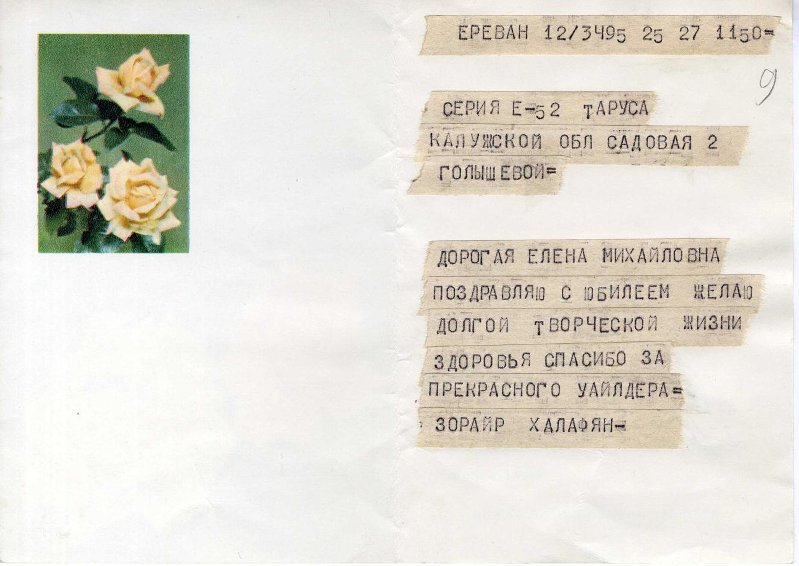 ЕРЕВАН 12/3495 25 27 1150=
9
СЕРИЯ Е-52 ТАРУСА
КАЛУЖСКОЙ ОБЛ САДОВАЯ 2
ГОЛЫШЕВОЙ=
ДОРОГАЯ ЕЛЕНА МИХАЙЛОВНА
ПОЗДРАВЛЯЮ С ЮБИЛЕЕМ ЖЕЛАЮ
ДОЛГОЙ ТВОРЧЕСКОЙ ЖИЗНИ
ЗДОРОВЬЯ СПАСИБО ЗА
ПРЕКРАСНОГО УАЙЛДЕРА=
ЗОРАЙР ХАЛАФЯН-